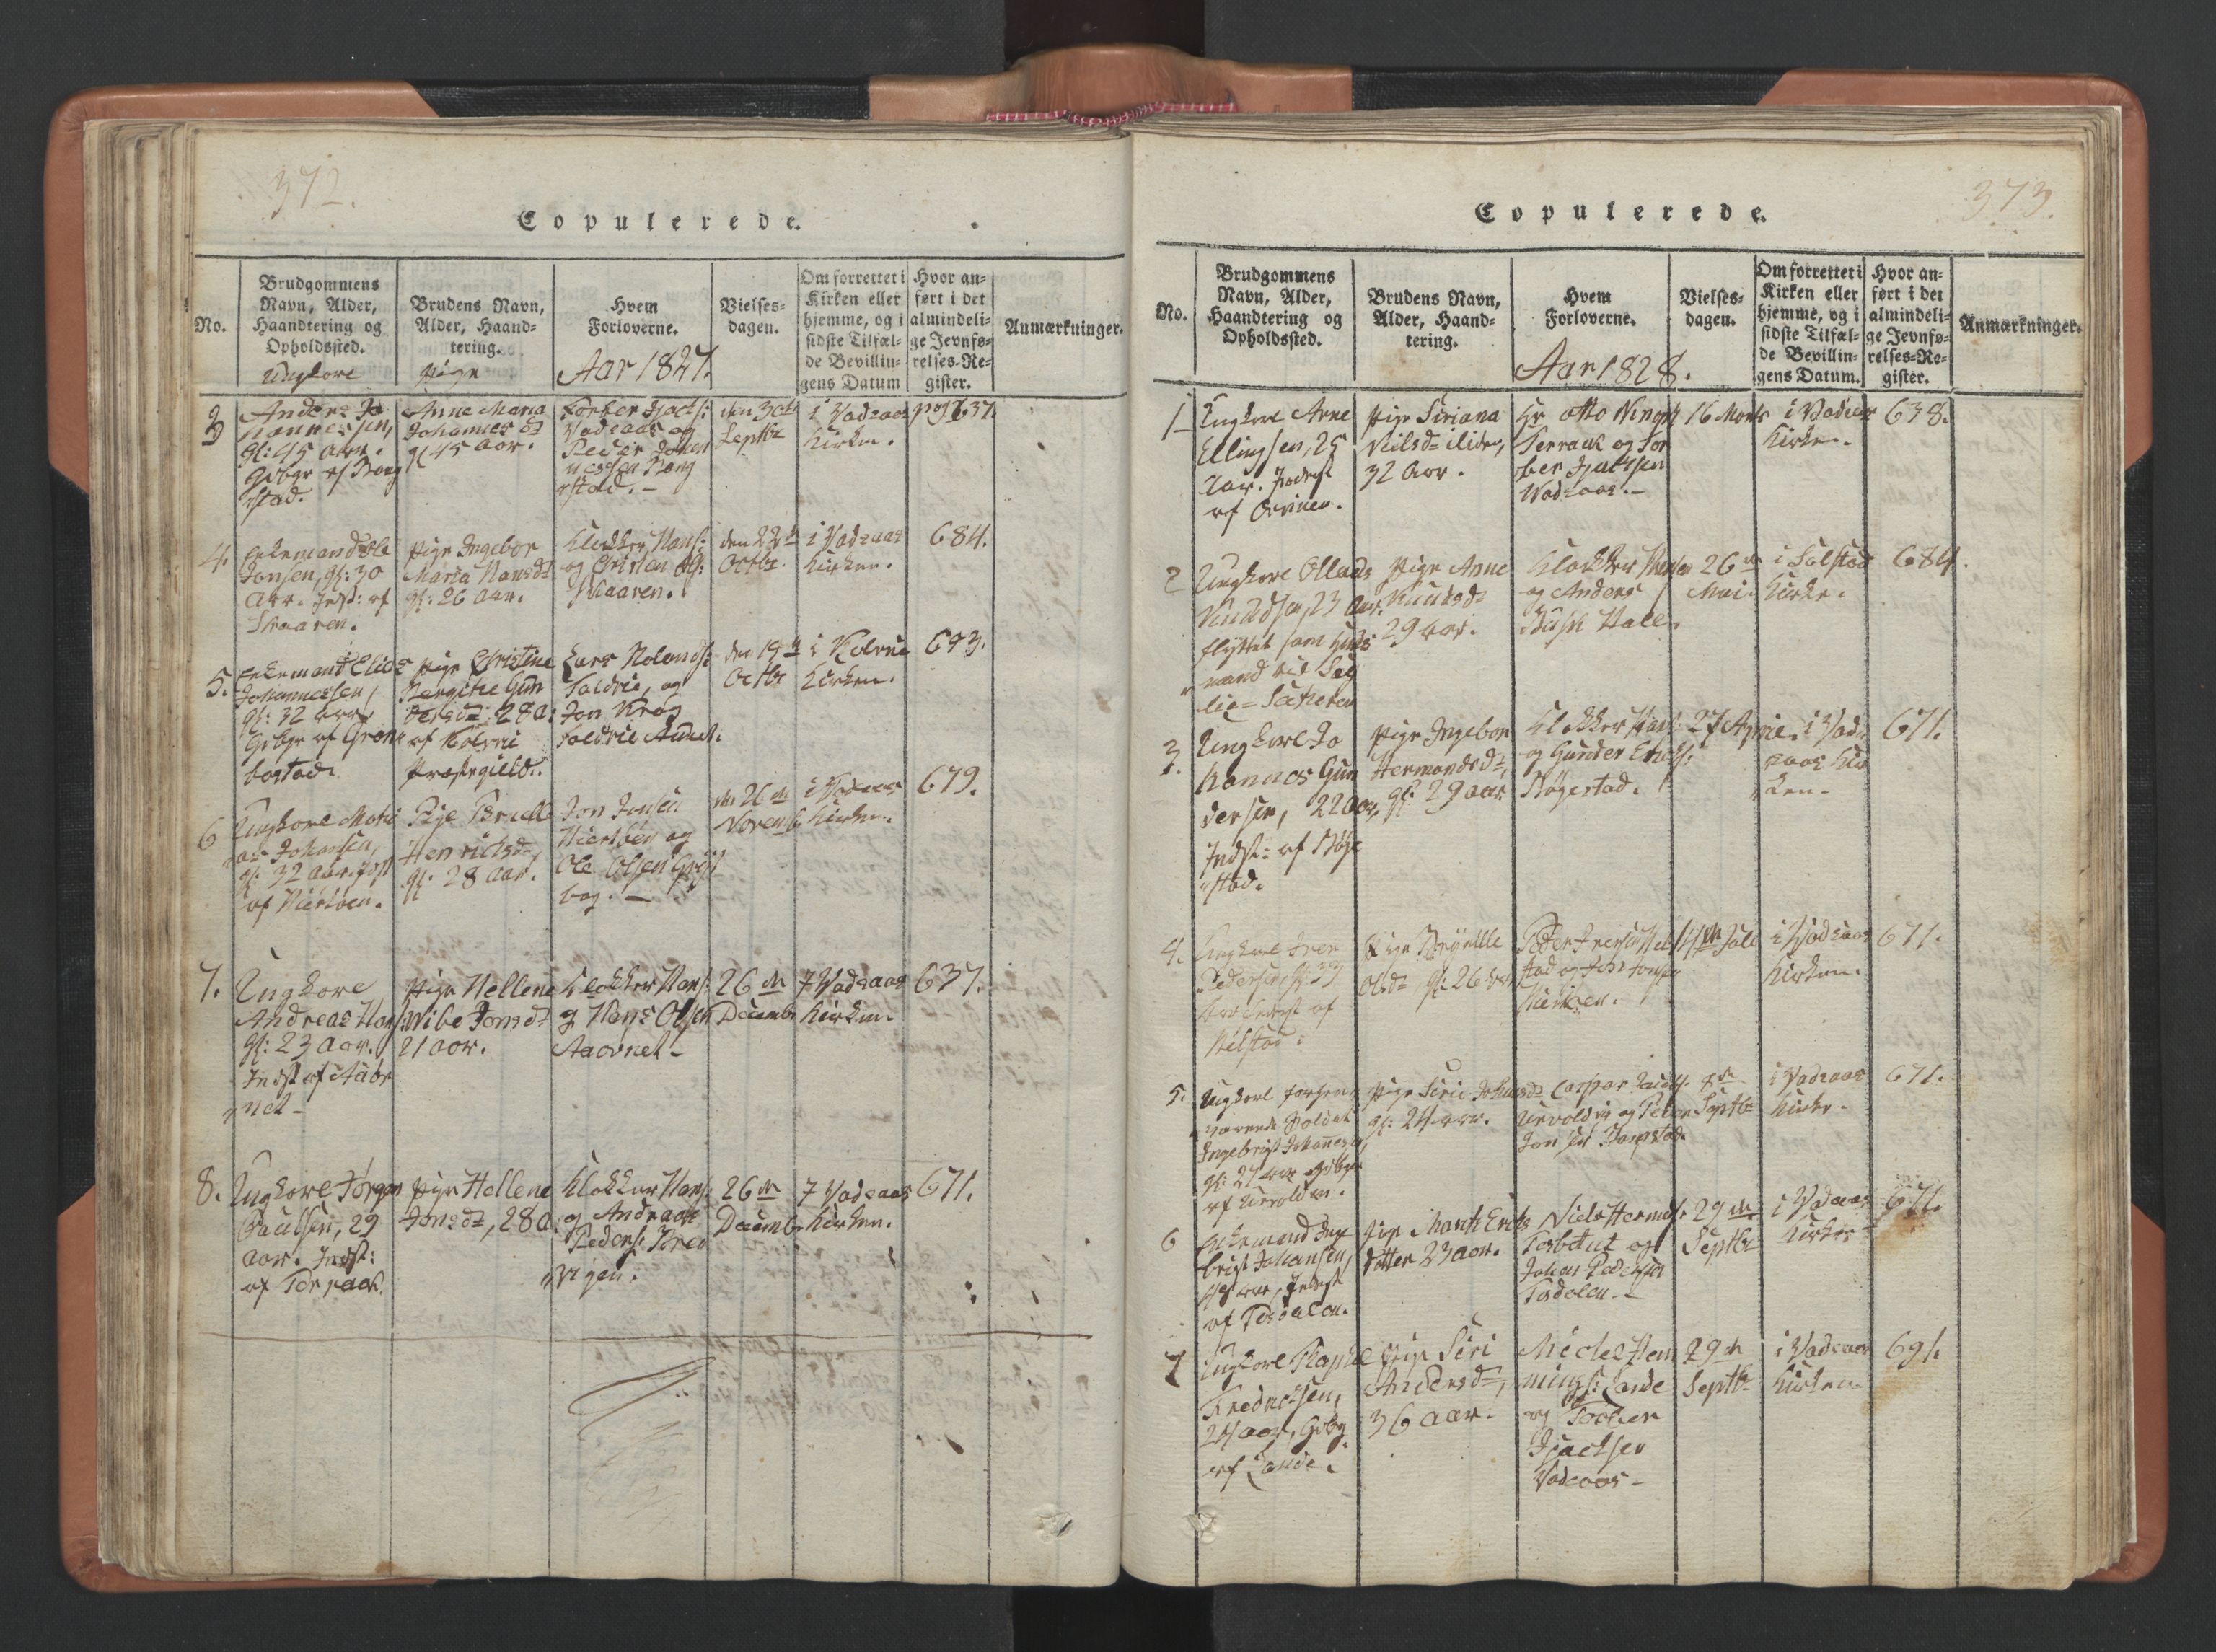 372.
Copulerede.
No.
Brudgommens
Navn, Alder,
Haandtering og
Opholdssted.
Brudens Navn,
Alder, Haand-
tering.
Hvem
Forloverne.
Vielses-
dagen.
Om forrettet i
Kirken eller
hjemme, og i
sidste Tilfæl-
de Bevillin-
gens Datum
Hvor an-
ført i det
almindeli-
ge Jevnfø-
relses-Re-
gister.
Anmærkninger.
Ungkare
pige
Aar 1827.
3
Anders Jo
hannessen,
gl: 45 aar.
Gdbgr af Borg
stad.
Anne Maria
Johannesd
gl 45 aar.
Torber Isacs:
Vadsaas og
Peder Johan
nessen Borg
stad.
den 30te
Septbr
i Vadsaas
Kirken.
pag 637.
4.
Enkemand Ole
Jonsen, gl: 30
Aar. Indst: af
Skaaren.
pige Ingebor
Maria Hansd
gl: 26 Aar.
Klokker Hans:
og Cristen Ol:
Skaaren.
den 22de
Octbr.
i Vadsaas
Kirken.
684.
5.
Enkemand Elias
Johannessen,
gl: 32 aar
Gdbgr af Grøn
bostad
pige Christine
Bergithe Gun
dersd: 28 a:
af Kolvrei
Præstegield.
Lars Rolands:
Soldrei, og
Jon Krog
Soldrei
den 19de
Octbr
i Kolvrei
Kirken.
693.
6
Ungkarl Mathi
as Johansen,
gl: 32 aar. Indst
af Hierløen.
Pige Berith
Henrichsd
gl: 28 Aar.
Jon Jonsen
Hierløen og
Ole Olsen
bog.
den 26de
Novemb
i Vadsaas
Kirken.
679.
7.
Ungkare
Andreas Hans:
gl: 23 aar.
Indst af Aabr
net
pige Hellene
Wibe Jonsd
21 aar.
Klokker Hans:
og Hans Olsen
Aaornet
26de
Decemb
i Vadsaas
Kirken
637.
8.
Ungkare Jørgen
Paulsen, 29
aar. Indst:
af Terraak.
pige Hellene
Jonsd, 28 a:
Klokker Hans:
og Andreas
Peders: Kred
vigen.
26de
Decemb
i Vadsaas
Kirken.
671.
373.
Copulerede.
No.
Brudgommens
Navn, Alder,
Haandtering og
Opholdssted.
Brudens Navn,
Alder, Haand-
tering.
Hvem
Forloverne.
Vielses-
dagen.
Om forrettet i
Kirken eller
hjemme, og i
sidste Tilfæl-
de Bevillin-
gens Datum.
Hvor an-
ført i det
almindeli-
ge Jevnfø-
relses-Re-
gister.
Anmærkninger.
Aar 1828.
1
Ungkare Arne
Ellingsen, 25
Aar. Inderst
af
pige Siriana
Neilsd
32 Aar.
Hr Otto
Terraak og Tor
ber Isachsen
Vadsaas.
16 Marts
i Vadsaas
Kirken.
638.
2
Ungkare Ollaus
Knudsen, 23 aar.
flyttet som Huus
mand til
lie-Sætheren
pige Anne
Knudsd
29 aar.
Klokker Hansen
og Anders
26de
Mai
i Solstad
Kirke.
684.
3.
Ungkare Jo
hannes Gun
dersen, 22 aar,
Indst: af Bøje
stad.
pige Ingebor
Hermansd,
gl: 29 aar
Klokker Hans:
og Gunder Erichs:
Bøgestad.
27 Aprie.
i Vad
saas Kir
ken.
671.
4.
Ungkare Iver
Pedersen gl: 33
aar Inderst af
Hilstad
Pige Bryntille
Olsd gl: 26 aar
Peder Iversen Hil
stad og Jon Jonsen
Hierløen.
14de Juli
i Vadsaas
Kirken.
671.
5.
Ungkarl forhen
værende Soldat
Ingebrigt Johannesen
gl: 27 aar Gdbgr
af Urvoldvi.
pige Siri Johansd
gl: 24 aar.
Caspar
Urvoldvi og Peter
Jonsen
8de
Septbr
i Vadsaas
Kirke.
671.
6
Enkemand Inge
brigt Johansen,
48 aar, Inderst
af Tosdalen.
pige Marith Erichs
datter 23 aar.
Niels Hermans:
Tosbotnet og
Johan Pedersen
Tosdalen.
29de
Septbr
i Vadsaas
Kirken
671.
7
Ungkare Raphael
Fredrichsen,
24 aar, Gdbg
af Lande.
pige Siri
Andersd,
36 aar.
Michel Hem
mings: Lande
og Torber
Isachsen
Vadsaas
29de
Septbr
i Vadsaas
Kirken
691.